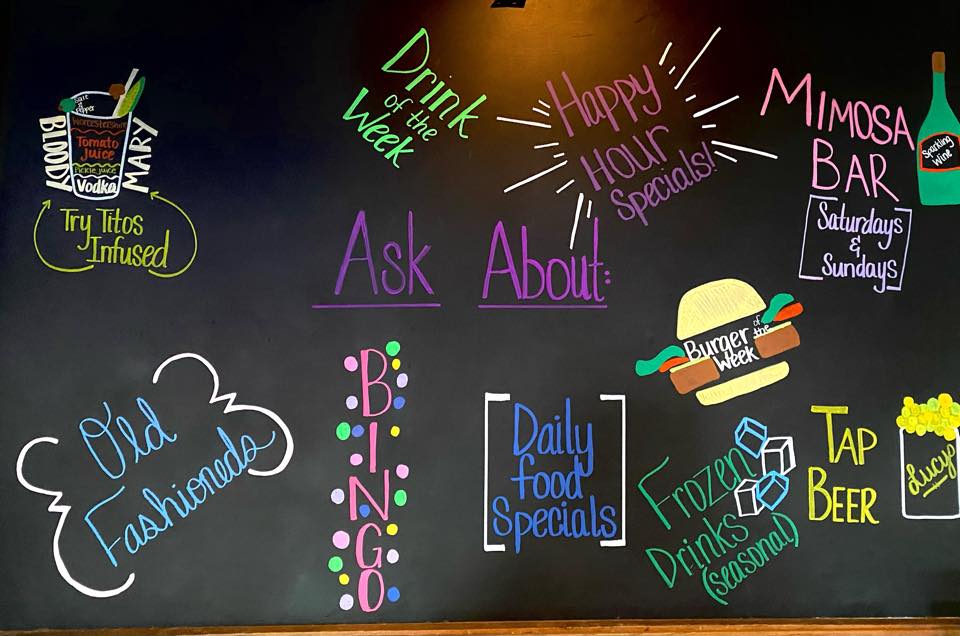 BLOODY
MARY
Salt
&
Pepper
Worcestershire
Tomato
Juice
Pickle juice
Vodka
Try Titos
Infused
Drink
of the
Week
Happy
HOUR
Specials!
MIMOSA
BAR
Saturdays
&
Sundays
Sparkling
Wine
Ask About:
Burger
of
the
Week
Old
Fashioneds
BINGO
Daily
food
Specials
Frozen
Drinks
(seasonal)
TAP
BEER
Lucys